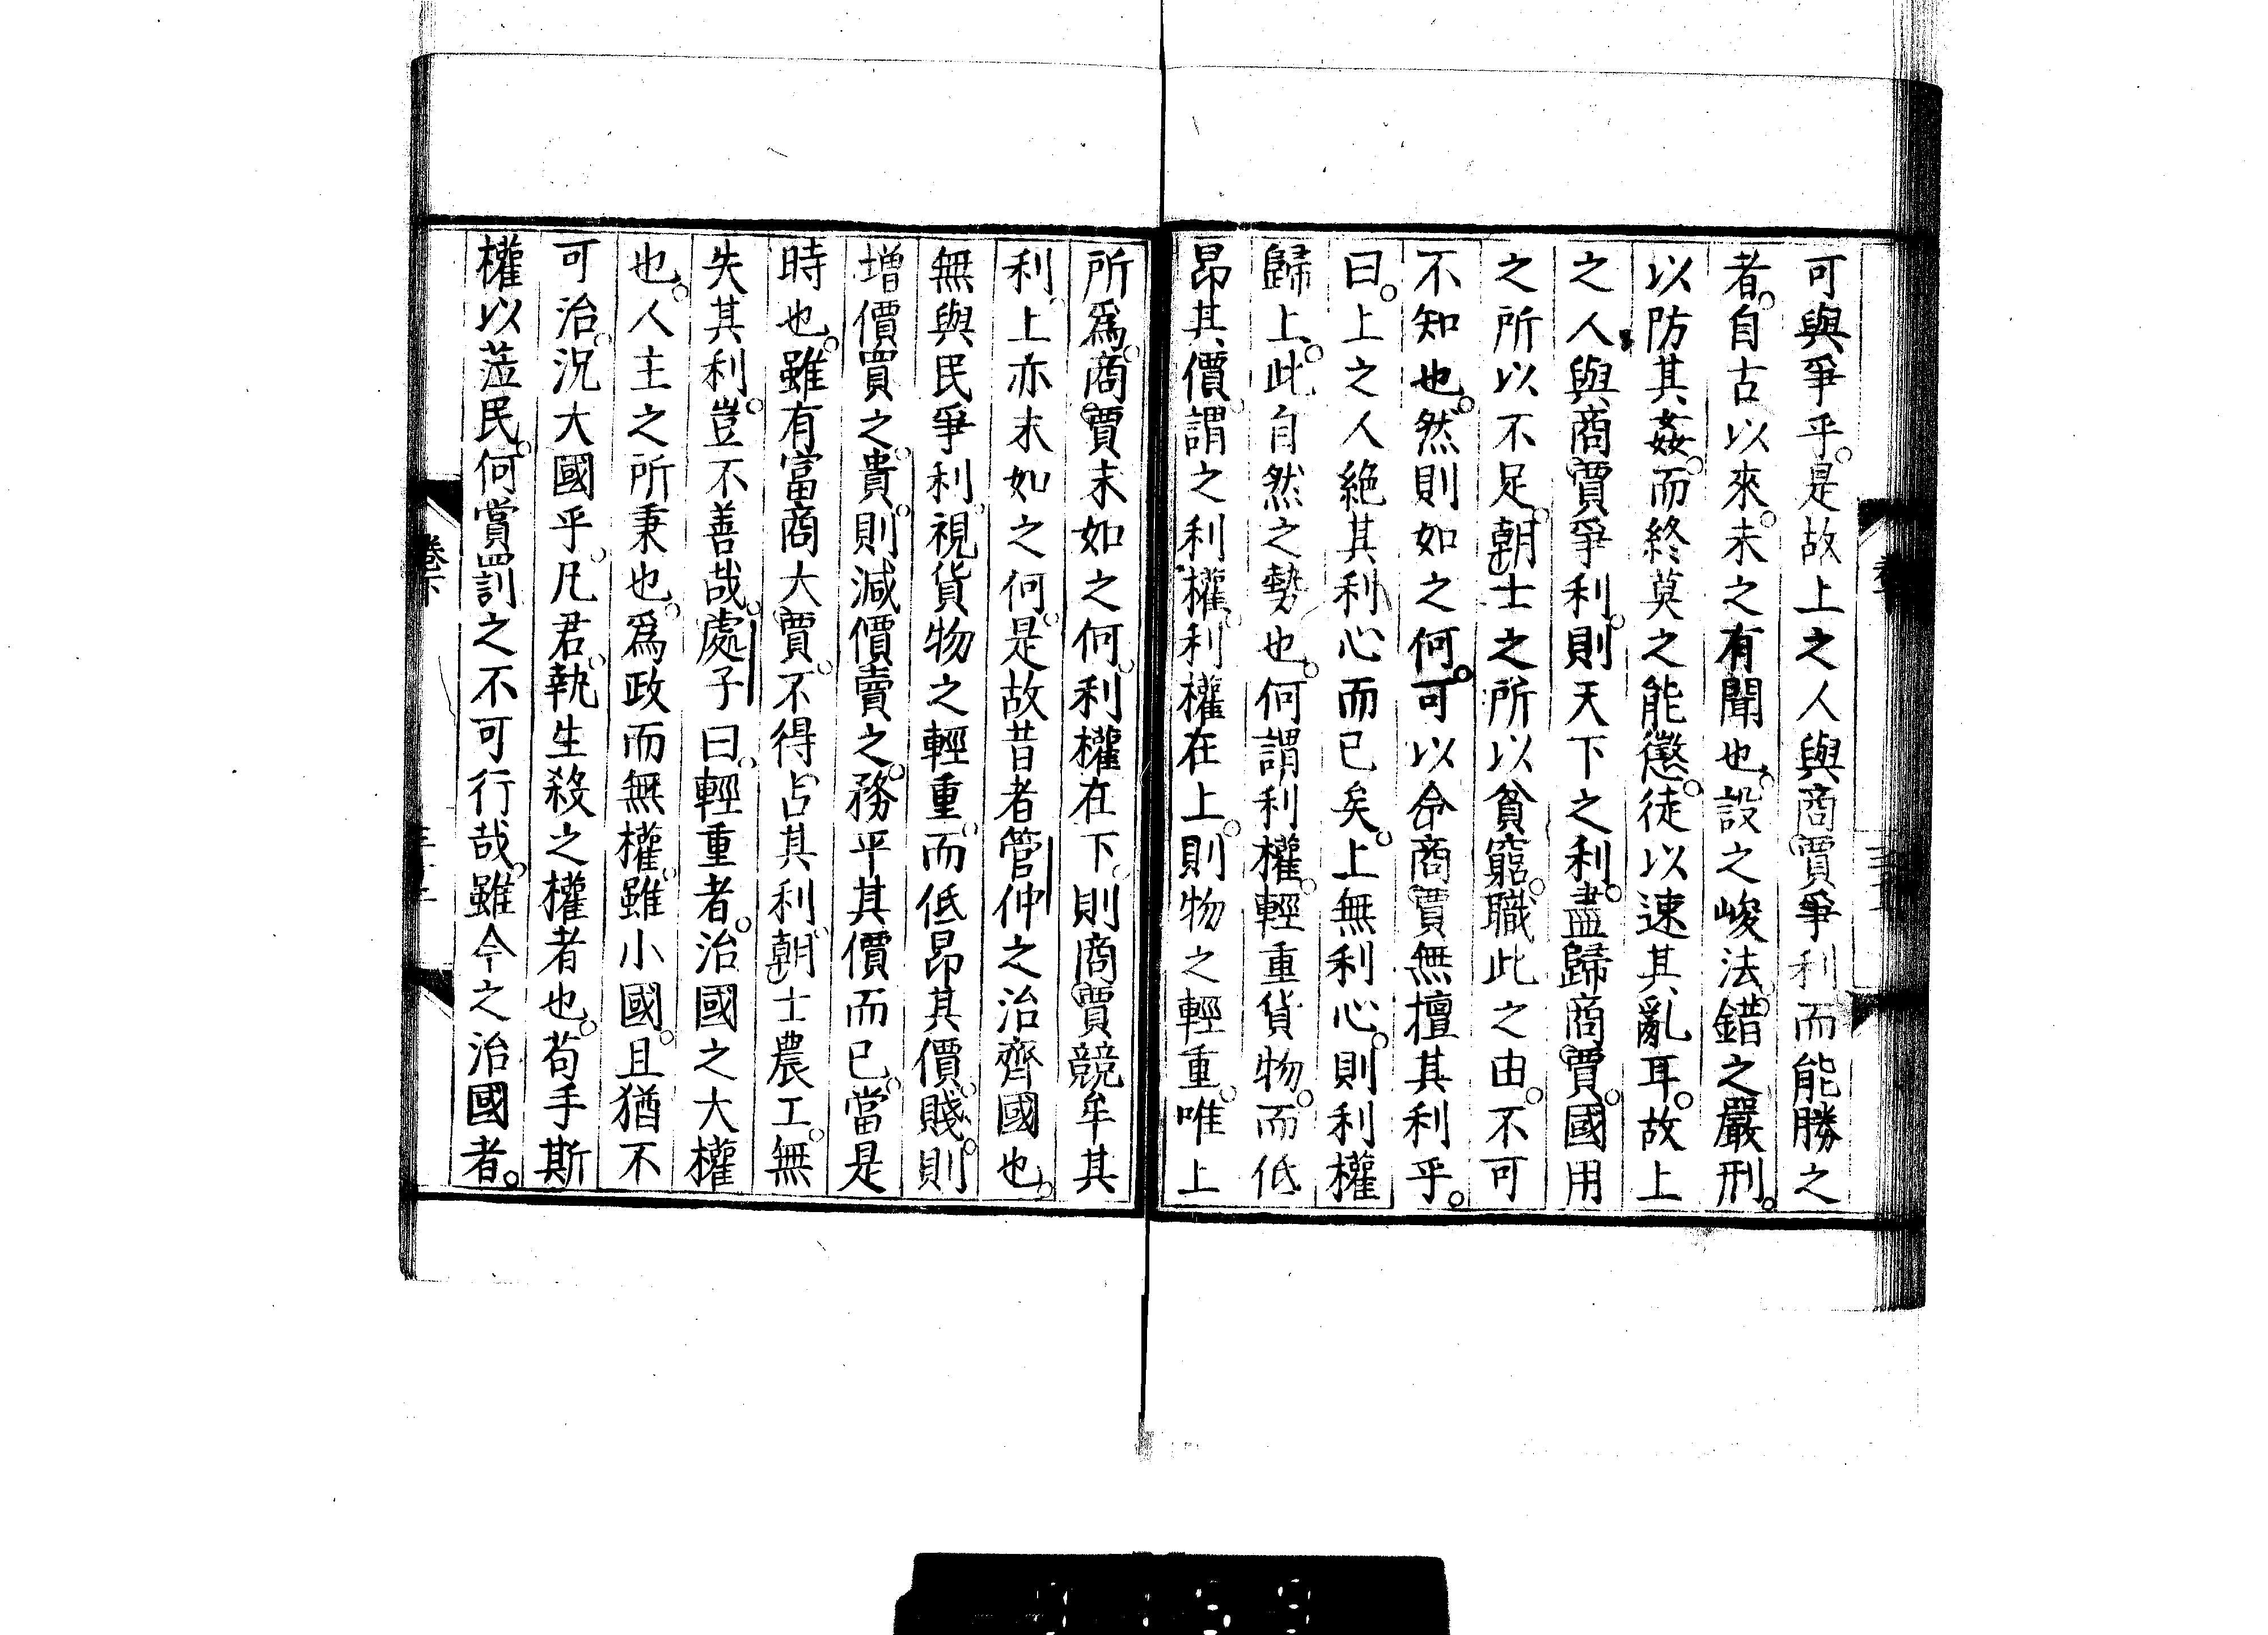 可與爭乎。是故上之人與商賈爭利而能勝之
者。自古以來。未之有聞也。設之峻法。錯之嚴刑。
以防其姦。而終莫之能懲。徒以速其亂耳。故上
之人與商賈爭利。則天下之利。盡歸商賈。國用
之所以不足。朝士之所以貧窮。職此之由。不可
不知也。然則如之何。可以令商賈無擅其利乎。
曰。上之人絕其利心而已矣。上無利心。則利權
歸上。此自然之勢也。何謂利權。輕重貨物。而低
昂其價。謂之利權。利權在上。則物之輕重。唯上
所爲。商賈末如之何。利權在下。則商賈競牟其
利。上亦末如之何。是故昔者管仲之治齊國也。
無與民爭利。視貨物之輕重。而低昂其價。賤。則
增價買之。貴。則減價賣之。務平其價而已。當是
時也。雖有富商大賈。不得占其利。朝士農工。無
失其利。豈不善哉。處子曰。輕重者。治國之大權
也。人主之所秉也。爲政而無權。雖小國。且猶不
可治。況大國乎。凡君。執生殺之權者也。苟手斯
權以蒞民。何賞罰之不可行哉。雖今之治國者。
卷下